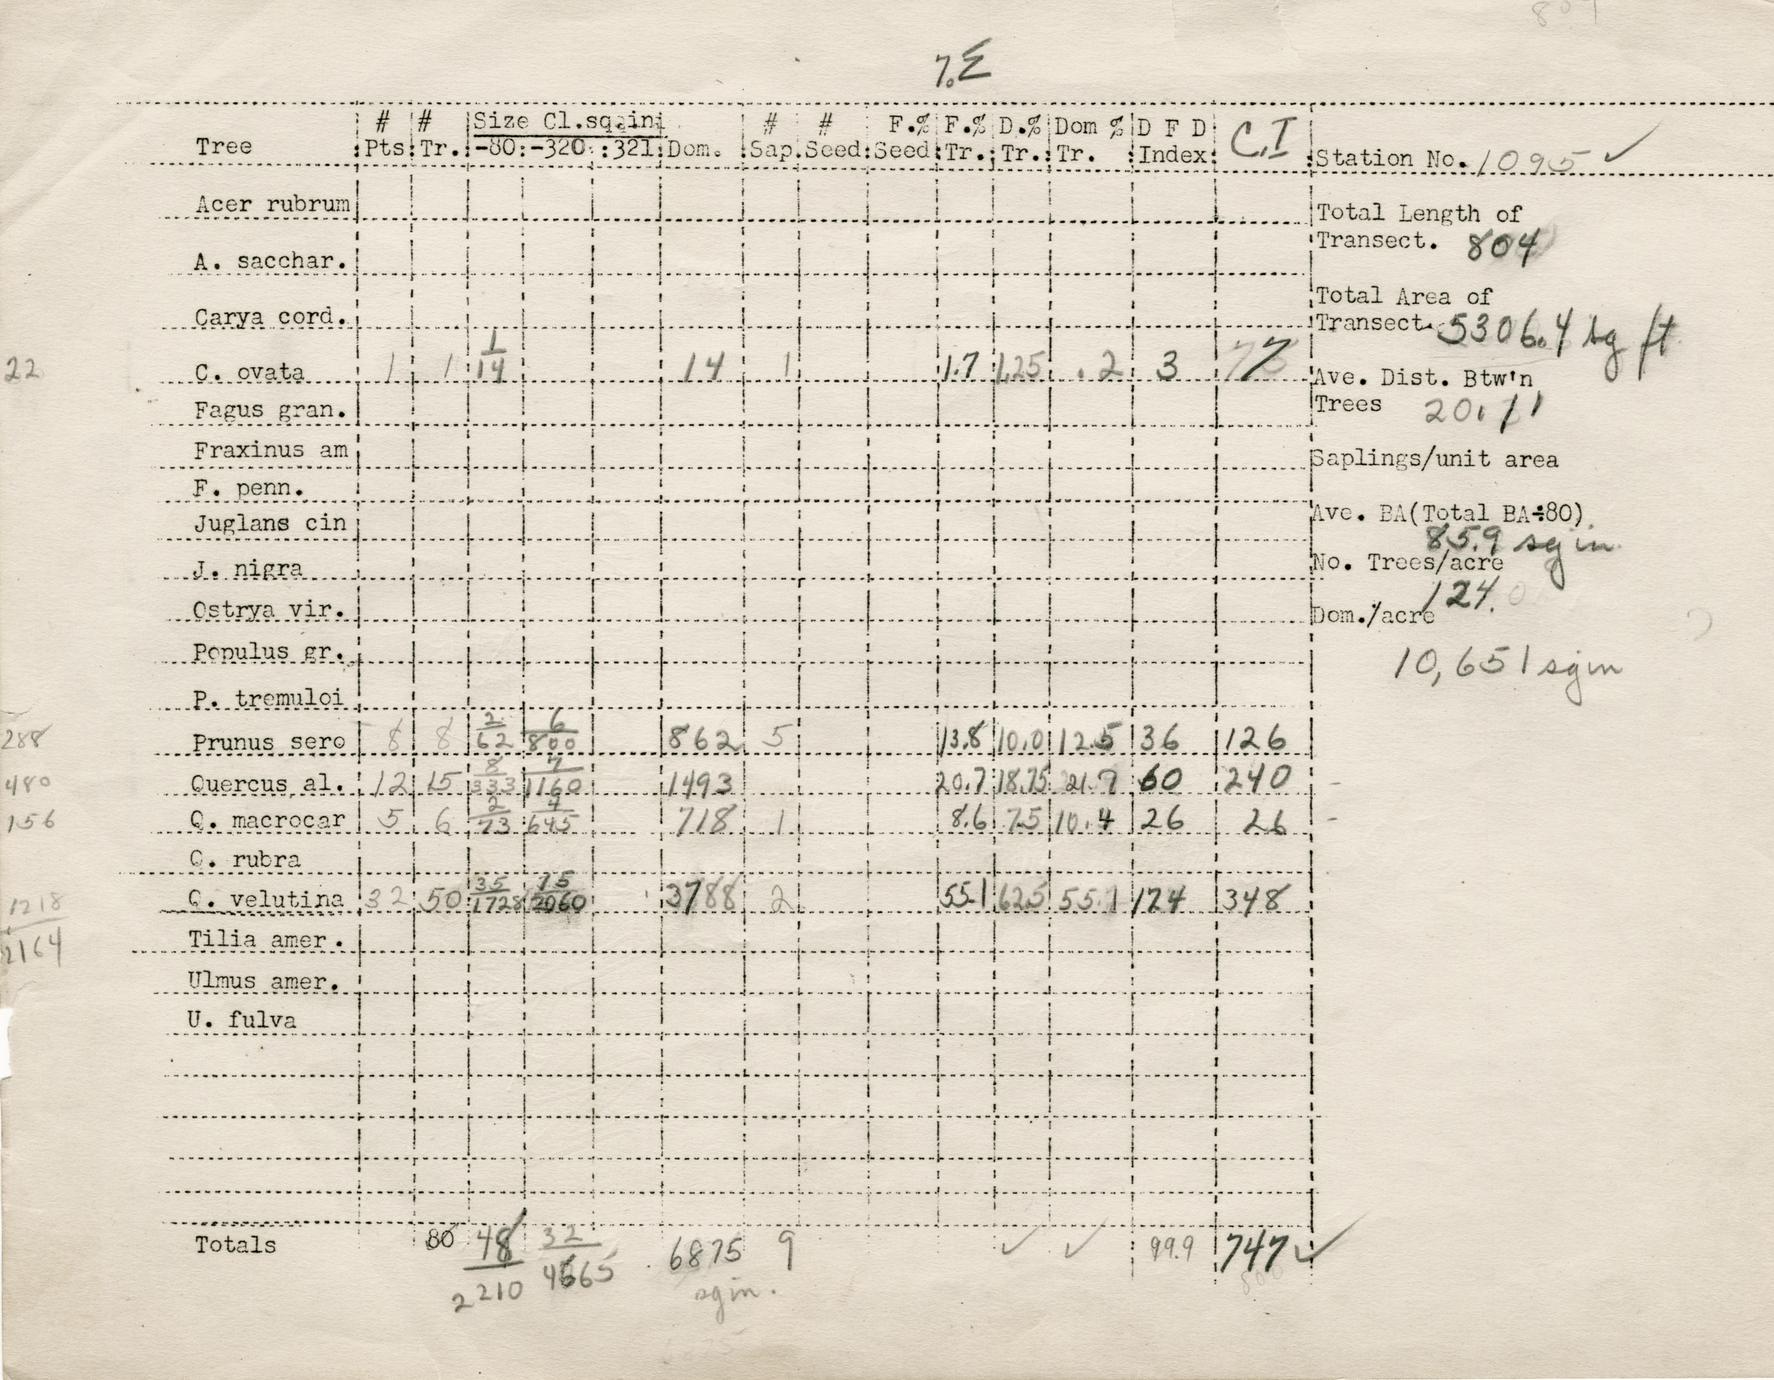 7.Σ
Tree # Pts # Tr. Size Cl.sq.in -80: -320 :321 Dom. # Sap. # Seed F.% Seed F.% Tr. D.% Tr. Dom % Tr. D F D Index C.I Station No. 1095 ✓
Acer rubrum
Total Length of
Transect. 804
A. sacchar.
Total Area of
Carya cord.
Transect. 5306.4 sq ft
22 C. ovata 1 1 1/14 14 1 1.7 1.25 .2 3
Ave. Dist. Btw'n
Trees
Fagus gran.
Fraxinus am
Saplings/unit area
F. penn.
Juglans cin
Ave. BA(Total BA÷80)
85.9 sq in
J. nigra
No. Trees/acre
124.
Ostrya vir.
Dom./acre
Populus gr.
10,651 sq in
P. tremuloi
288 Prunus sero 8 8 2/62 6/800 862 5 13.8 10.0 12.5 36 126
480 Quercus al. 12 15 8/333 7/1160 1493 20.7 18.75 21.7 60 240
156 Q. macrocar 5 6 2/73 4/645 718 1 8.6 7.5 10.4 26 26
Q. rubra
1218 Q. velutina 32 50 35/1728 15/2060 3788 2 55.1 62.5 55.1 174 348
2164
Tilia amer.
Ulmus amer.
U. fulva
Totals 80 48/2210 32/4665 6875 sq in. 9 ✓ ✓ 99.9 747 ✓